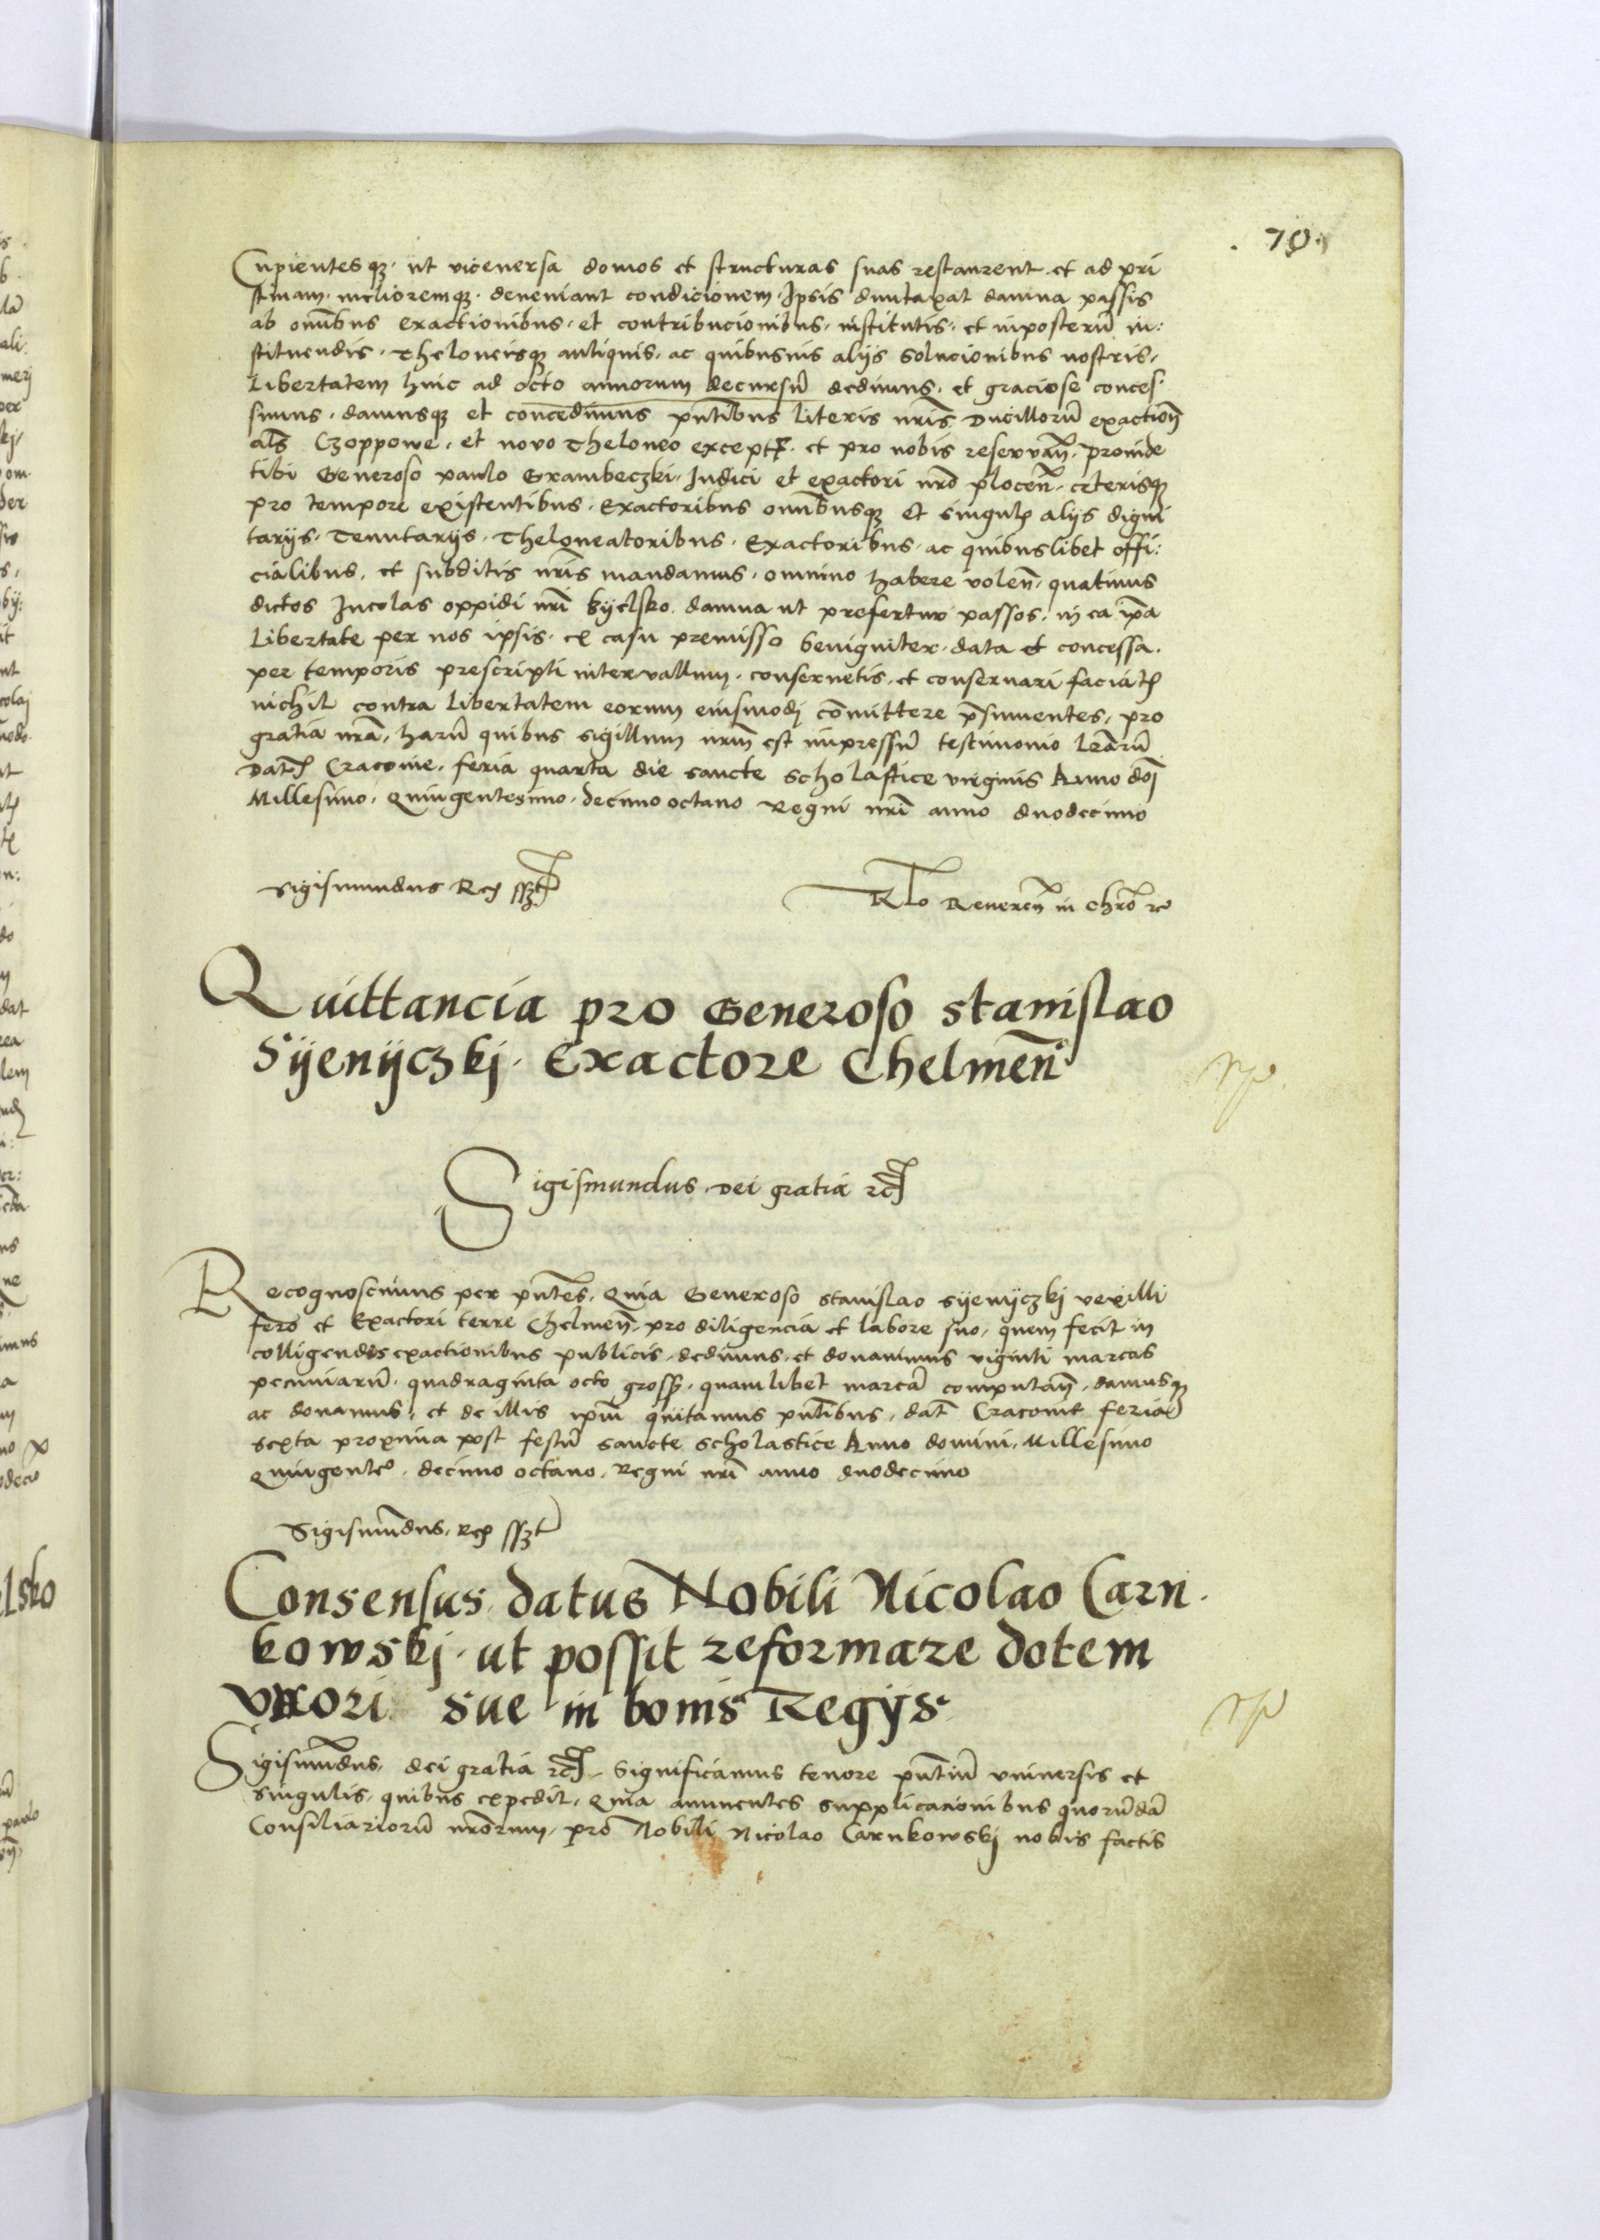 . 70.
Cupientesqz. ut viceversa domos et structuras suas restaurent et ad pri
stinam. melioremqz. deveniant condicionem. Ipsis duntaxat damna passis
ab om̄ibus exactionibus. et contribucionibus. institutis. et inposterū in:
stituendis. Theloneisqz antiquis. ac quibusvis alijs solucionibus nostris.
Libertatem huic ad octo annorum decursū dedimus. et graciose conces.
simus. damusqz et concedimus pn̄tibus literis nr̄is Ducillorū exaction̄
als̄ Czoppowe. et novo Theloneo except. et pro nobis reservan̄. proinde
tibi Generoso paulo Grambeczki. Iudici et exactori nr̄o plocen̄. ceterisqz
pro tempore existentibus. Exactoribus om̄ibusqz et singul. alijs digni
tarijs. Tenutarijs. Theloneatoribus. Exactoribus. ac quibuslibet offi:
cialibus. et subditis nr̄is mandamus. omnino habere volen̄. quatinus
dictos Incolas oppidi nr̄i Byelsko. damna ut prefertur passos. in ea ip̄a
Libertate per nos ipsis. ex casu premisso benigniter. data et concessa.
per temporis prescripti intervallum. conservetis. et conservari faciat.
nichil contra Libertatem eorum eiusmodj cōmittere p̄sumentes. pro
gratia nr̄a. harū quibus sigillum nr̄m est impressū testimonio lr̄arū
Dat. Cracovie. feria quarta die sancte Scholastice virginis Anno doj̄
Millesimo. Quingentesimo. decimo octavo Regni nr̄i anno duodecimo
Sigismundus Rex sszt
Rlo Reveren̄ in Chrō rc
Quittancia pro Generoso Stanislao
Sÿenÿczkj. Exactore Chelmen̄
Sigismundus. Dei gratia rc
Recognoscimus per pn̄tes. Quia Generoso Stanislao Sÿenÿczkj vexilli
fero et Exactori terre Chelmen̄. pro diligencia et labore suo. quem fecit in
colligendis exactionibus publicis. dedimus. et donavimus viginti marcas
pecuniarū. quadraginta octo gross. quamlibet marcā computan̄. damusqz
ac donamus. et de illis ipm̄ quitamus pn̄tibus. dat̄ Cracovie feria
sexta proxima post festū sancte Scholastice Anno domini. Millesimo
Quingenteo. decimo octavo. Regni nr̄i anno duodecimo
Sigismūdus. Rex sszt
Consensus. datus Nobili Nicolao Carn.
kowskj. ut possit reformare dotem
Uxori sue in bonis Regÿs.
Sigismūdus. dei gratia rc. Significamus tenore pn̄tiū universis et
singulis. quibus expedit. Quia annuentes supplicacionibus quorūdā
Consiliariorū nr̄orum. pro Nobili Nicolao Carnkowskj nobis factis